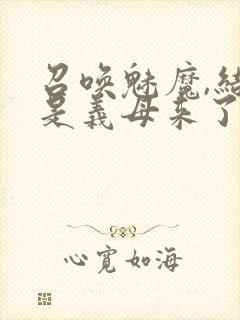 召唤魅魔,结
是义母来了
心宽如海